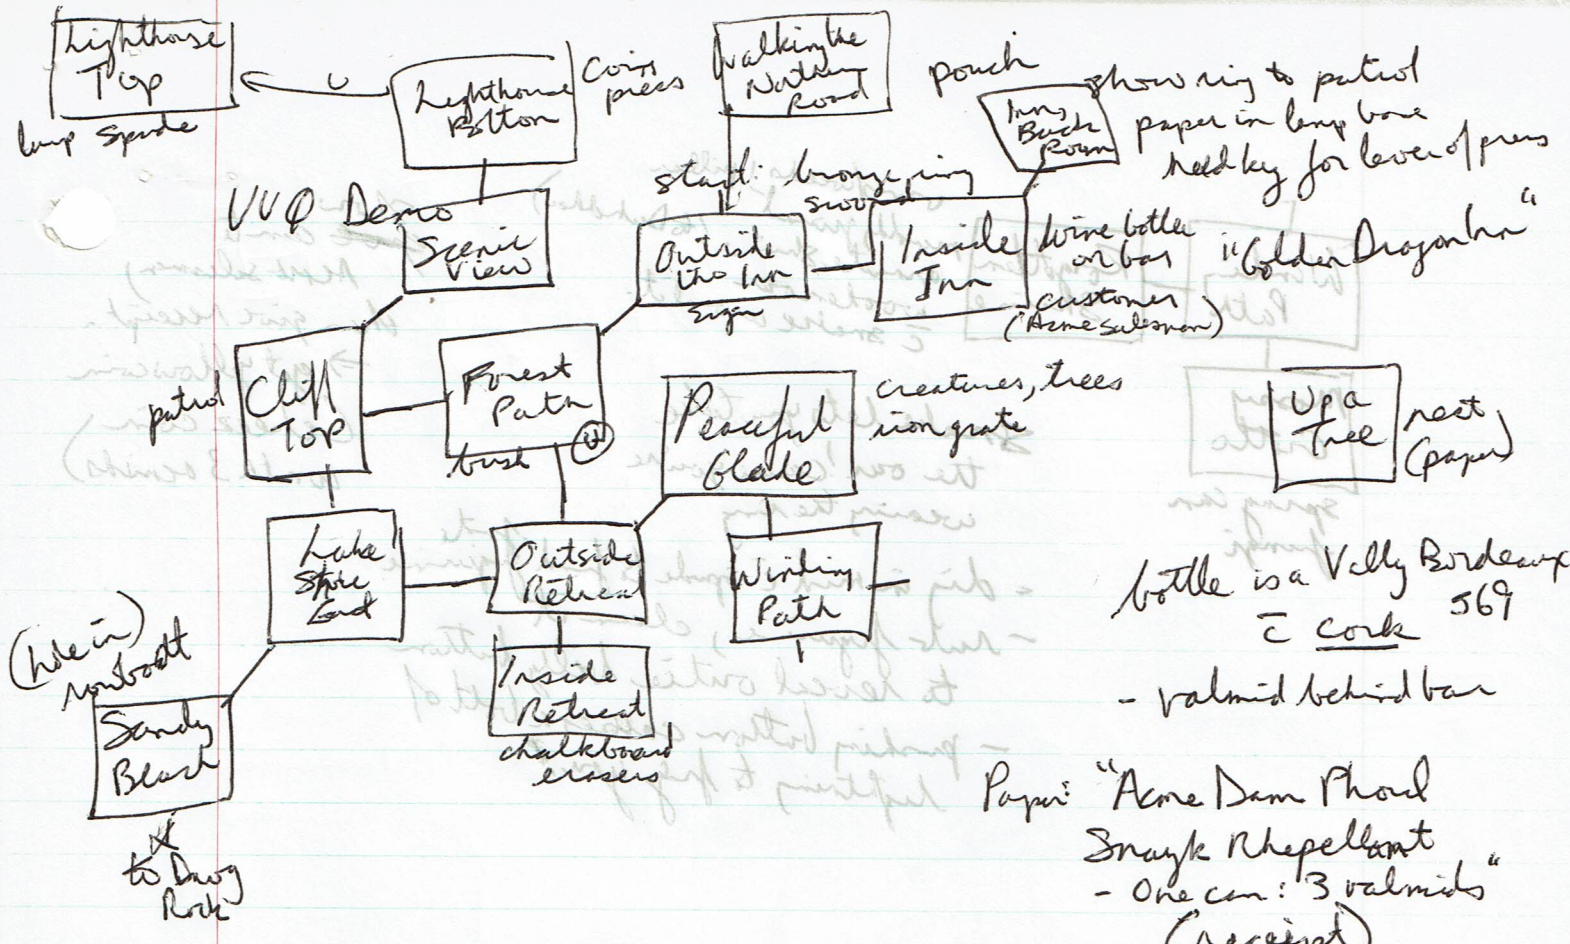 Lighthouse
Top
U
lamp spade
Lighthouse
Bottom
Coin
press
Walking the
Northern
Road
pouch
Inn,
Back
Room
show ring to patrol
paper in lamp base
need key for lever of press
start: bronze ring
sword
VVQ Demo
Scenic
View
Outside
the Inn
sign
Inside
Inn
Wine bottle
on bar
customer
(Acme salesman)
"Golden Dragon Inn"
patrol
Cliff
Top
Forest
Path
bush
U
Peaceful
Glade
creatures, trees
iron grate
Up a
Tree
nest
(paper)
Lake
Shore
East
Outside
Retreat
Winding
Path
bottle is a Vally Bordeaux
569
c̄ cork
- valmid behind bar
(hole in)
rowboat
Sandy
Beach
Inside
Retreat
chalkboard
erasers
to Dawg
Rock
Paper: "Acme Dam Phool
Snayk Rhepellant
- One can: 3 valmids"
(receipt)